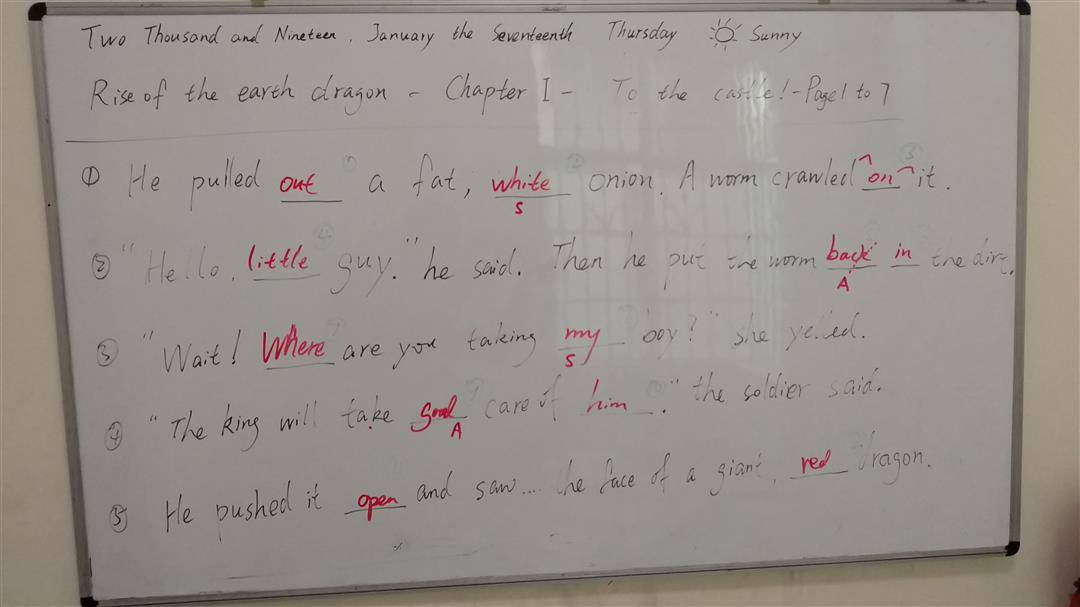 Two Thousand and Nineteen, January the Seventeenth Thursday Sunny
Rise of the earth dragon - Chapter I - To the castle! - Page 1 to 7
① He pulled out a fat, white onion. A worm crawled on it.
S
② "Hello, little guy." he said. Then he put the worm back in the dirt.
A
③ "Wait! Where are you taking my boy?" she yelled.
S
④ "The king will take good care of him." the soldier said.
A
⑤ He pushed it open and saw... the face of a giant, red dragon.